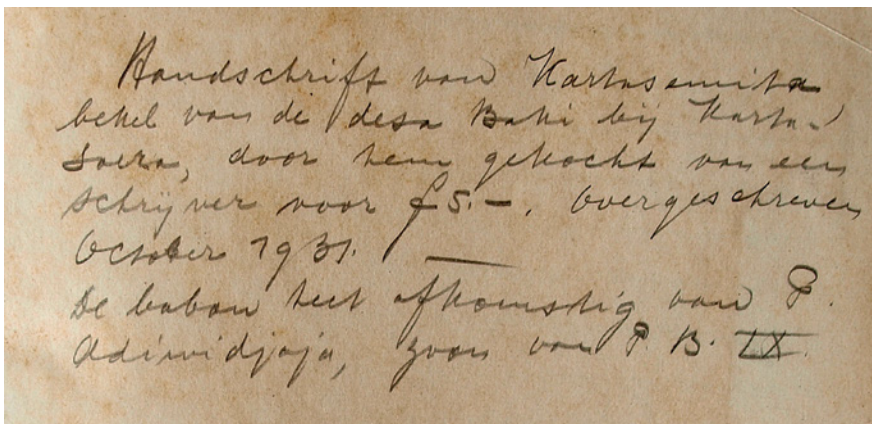 Handschrift van Kartasemita
bekel van de desa Baki bij Karta-
soera, door hem gekocht van een
schrijver voor f 5.-. Overgeschreven
October 1931. —
De babon heet afkomstig van P.
Adiwidjaja, zoon van P. B. IX.